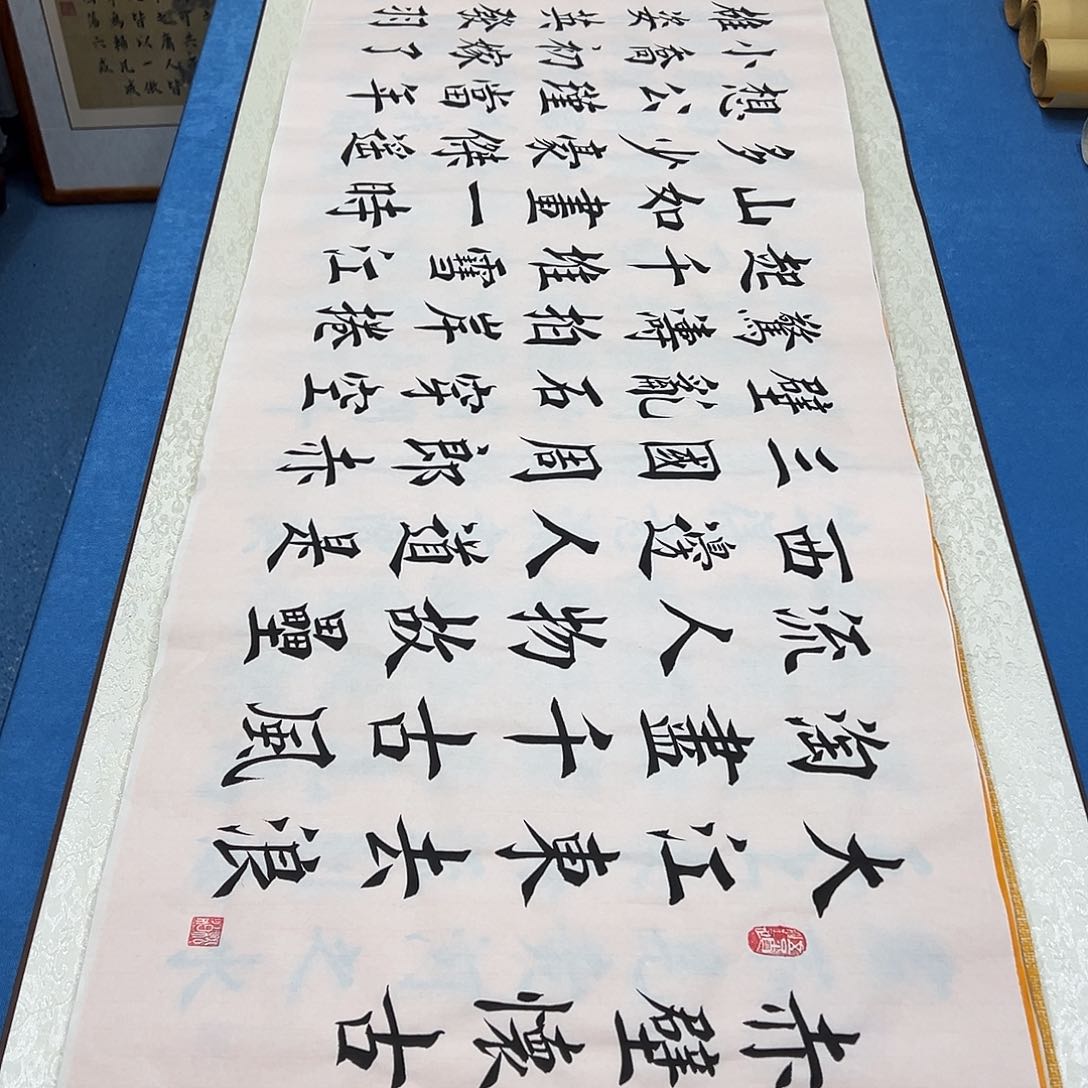 赤壁懷古
大江東去浪
淘盡千古風
流人物故壘
西邊人道是
三國周郎赤
壁亂石穿空
驚濤拍岸捲
起千堆雪江
山如畫一時
多少豪傑遥
想公瑾當年
小喬初嫁了
雄姿英發羽